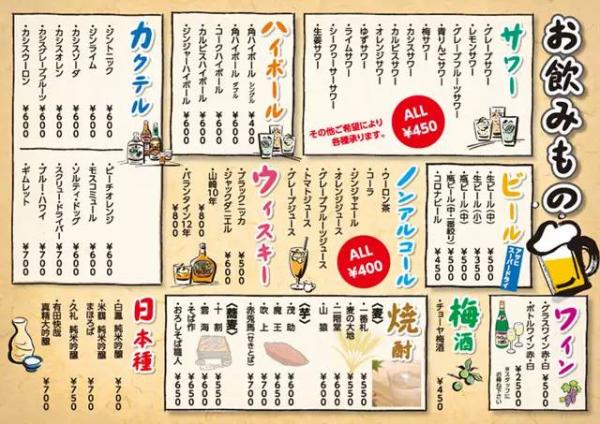 お飲みもの
サワー
・グレープサワー
・レモンサワー
・グレープフルーツサワー
・青りんごサワー
・梅サワー
・カシスサワー
・カルピスサワー
・オレンジサワー
・ゆずサワー
・ライムサワー
・シークワーサーサワー
・生姜サワー
ALL
¥450
その他ご希望により
各種承ります。
ハイボール
・角ハイボール シングル ¥400
・角ハイボール ダブル
・コークハイボール ¥600
・カルピスハイボール ¥600
・ジンジャーハイボール ¥600
カクテル
・ジントニック ¥600
・ジンライム ¥600
・カシスソーダ ¥600
・カシスオレン ¥600
・カシスグレープフルーツ ¥600
・カシスウーロン ¥600
・ピーチオレンジ ¥600
・モスコミュール ¥600
・ソルティ・ドッグ ¥600
・スクリュー・ドライバー ¥700
・ブルー・ハワイ ¥700
・ギムレット ¥700
ビール
アサヒ
スーパードライ
・生ビール(中) ¥500
・生ビール(小) ¥350
・瓶ビール(中)
・瓶ビール(中・一番絞り)
・コロナビール ¥450
ノンアルコール
・ウーロン茶
・コーラ
・ジンジャエール
・オレンジジュース
・グレープフルーツジュース
・トマトジュース
・グレープジュース
ALL
¥400
ウィスキー
・ブラックニッカ ¥500
・ジャックダニエル ¥600
・山崎10年 ¥800
・バランタイン12年 ¥800
ワイン
・グラスワイン赤・白 ¥500
・ボトルワイン赤・白 ¥2500
※スタッフに
お尋ね下さい
梅酒
・チョーヤ梅酒 ¥450
焼酎
〈麦〉
・一番札
・麦の大地
・二階堂
・山猿
〈芋〉
・茂助 ¥500
・魔王 ¥650
・吹上 ¥500
・赤兎馬(せきとば) ¥650
〈蕎麦〉
・十割 ¥550
・雲海 ¥550
・そば作 ¥650
・おろしそば職人 ¥650
日本種
・白瀑 純米吟醸 ¥700
・米鶴 純米吟醸
まほろば ¥700
・久礼 純米吟醸 ¥700
・有田快哉
真精大吟醸 ¥750